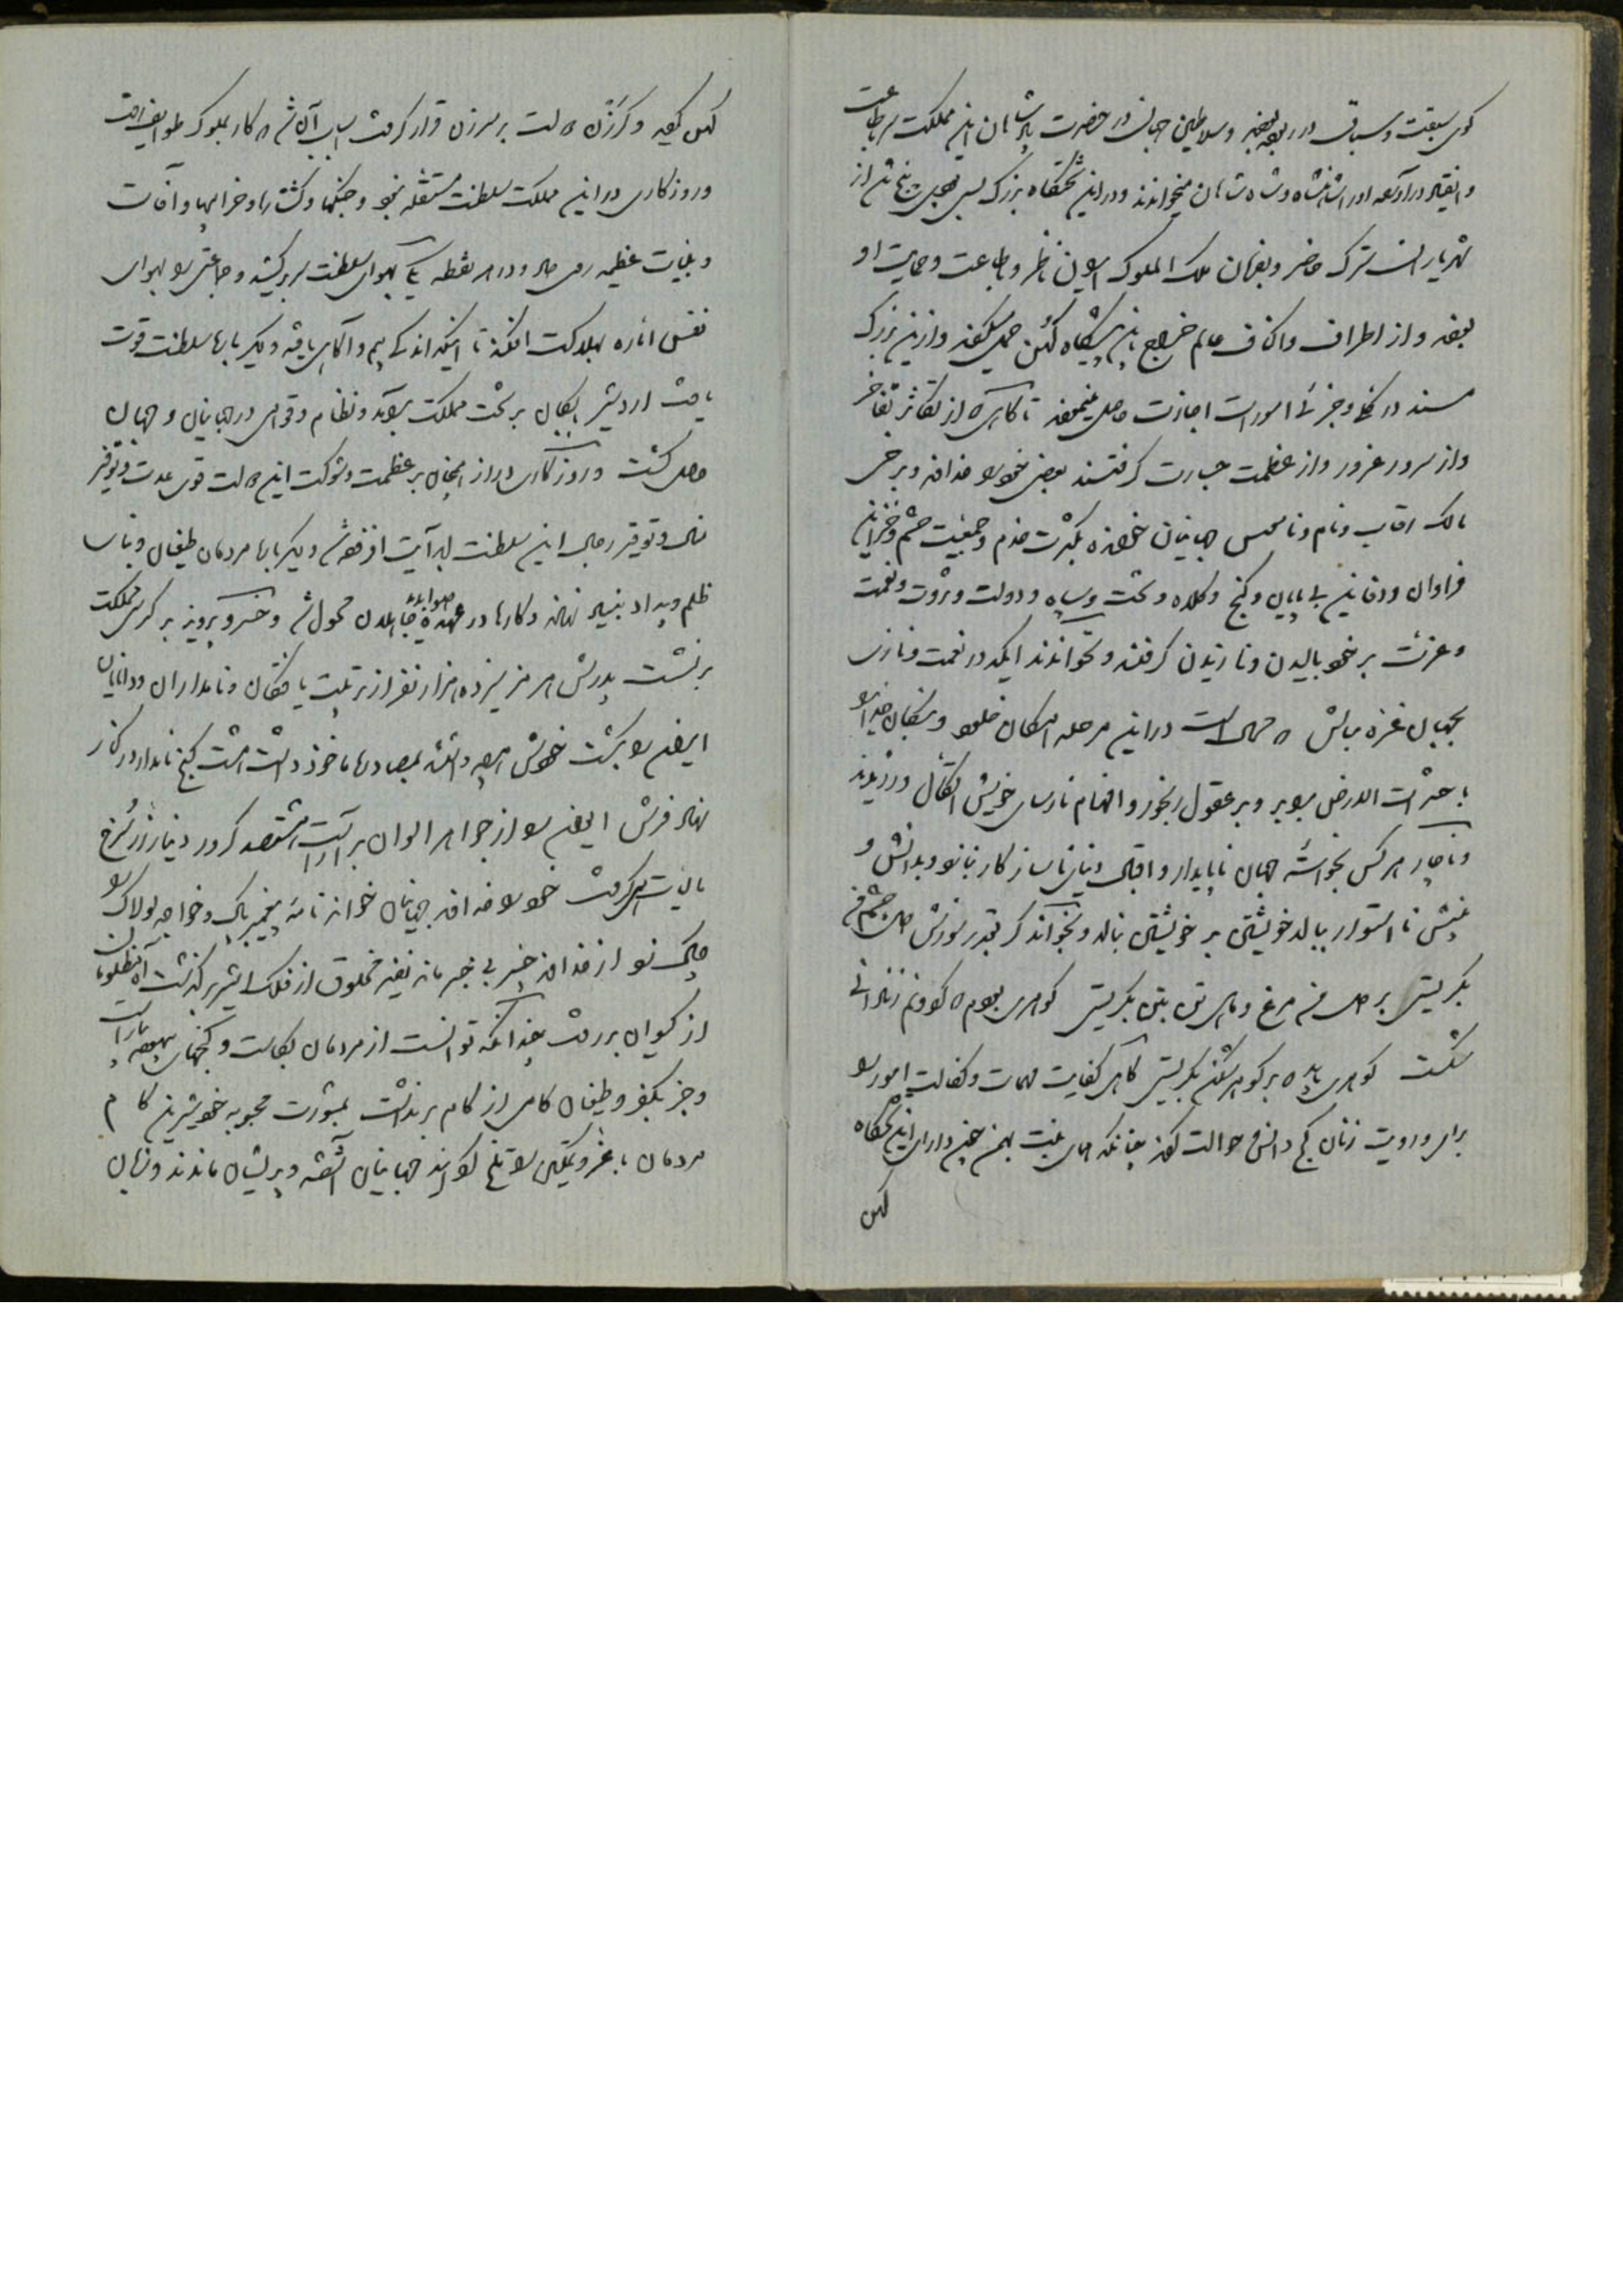 گوی سبقت و سباق در ربوده و سلاطین جهان در حضرت پادشاهان این مملکت سر بطاعت
و انقیاد در آورده او را شاهنشاه و شاه شاهان میخواندند و در این تختگاه بزرگ بسی از
شهریاران سترگ حاضر و بفرمان ملک الملوک ایران ناظر و باطاعت و حمایت او
بوده و از اطراف و اکناف عالم خراج باین پیشگاه کهن حمل میکردند و ازین بزرگ
مسند در کلی و جزئی امورات اجازت حاصل مینمودند تا گاهی که از تکاثر تفاخر
و از سرور غرور و از عظمت جسارت گرفتند بعضی خود را خدا و برخی
مالک رقاب و نام و ناموس جهانیان خوانده بکثرت خدم و جمعیت حشم و خزاین
فراوان و دفاین بی پایان و گنج و کلاه و تخت و سپاه و دولت و ثروت و نعمت
و عزت بر خود بالیدن و نازیدن گرفتند و نخواندند ایکه در نعمت و نازی
بجهان غره مباش که محال است در این مرحله امکان خلود و بندگان خدا را
با حشرات الارض برابر و بر عقول رنجور و افهام نارسای خویش اتکال ورزیدند
و ناچار هر کس بخواسته جهان ناپایدار و اقبال دنیای ناسازگار بنازد و بدانش و
بینش نا استوار ببالد خویشتن بر خویشتن بنالد و بخواند گر بقدر سوزش دل چشم من
بگریستی بر دل من مرغ و ماهی تن بتن بگریستی گوهری بود که گردون زنادانی
شکست گوهری باید که بر گوهر شکن بگریستی گاهی کفایت مهمات و کفالت امور را
برای و رویت زنان کج دانش حوالت کردند چنانکه همای بنت بهمن چون دارای این تختگاه
کهن
کهن گردید و گرزن که است بر سر زن قرار گرفت اسباب آن شد که کار بملوک طوایف افتاد
و روزگاری در این مملکت سلطنت مستقله نبود و جنگها و کشتارها و خرابیها و آفات
و بلیات عظیمه روی داد و در هر نقطه یکی بهوای سلطنت سر برکشید و جماعتی را بهوای
نفس اماره بهلاکت افکند تا اینکه اندکی بیم و آگاهی یافته دیگر باره سلطنت قوت
یافت اردشیر بابکان بر تخت مملکت برآمد و نظام و قوامی در جهانیان و جهان
حاصل گشت و روزگاری دراز همچنان بر عظمت و شوکت این دولت قوی عدت و توفیر
مال و توقیر رجال این سلطنت بدرآیت افزوده شد دیگر باره مردمان طغیان و بنای
ظلم و بیداد بنیاد نهادند و کارها در عهده صوابدید جاهلان محول شد و خسرو پرویز بر کرسی مملکت
برنشست پدرش هرمز سیزده هزار نفر از تربیت یافتگان و نامداران و دانایان
ایران را بکشت خویش و بمصادرها ماخوذ داشت هشت گنج نامدار در کنار
نهاد فرش ایوان را از جواهر الوان بر آراست هشتصد کرور دینار زر سرخ
مالیات میگرفت خود را خدای جهانیان خواند نامه پیغمبر پاک و خواجه لولاک را
چاک نمود از خدای خبیر بی خبر ماند نفیر مخلوق از فلک اثیر برگذشت آه مظلومان
از کیوان بر رفت چندانکه توانست از مردمان بکاست و گنجهای بیهوده بیاراست
و جز بکفر و طغیان گامی از گام برنداشت بمشورت محبوبه خود شیرین کام
مردمان با عز و تمکین را تلخ گردانید جهانیان آشفته و پریشان ماندند و زبان